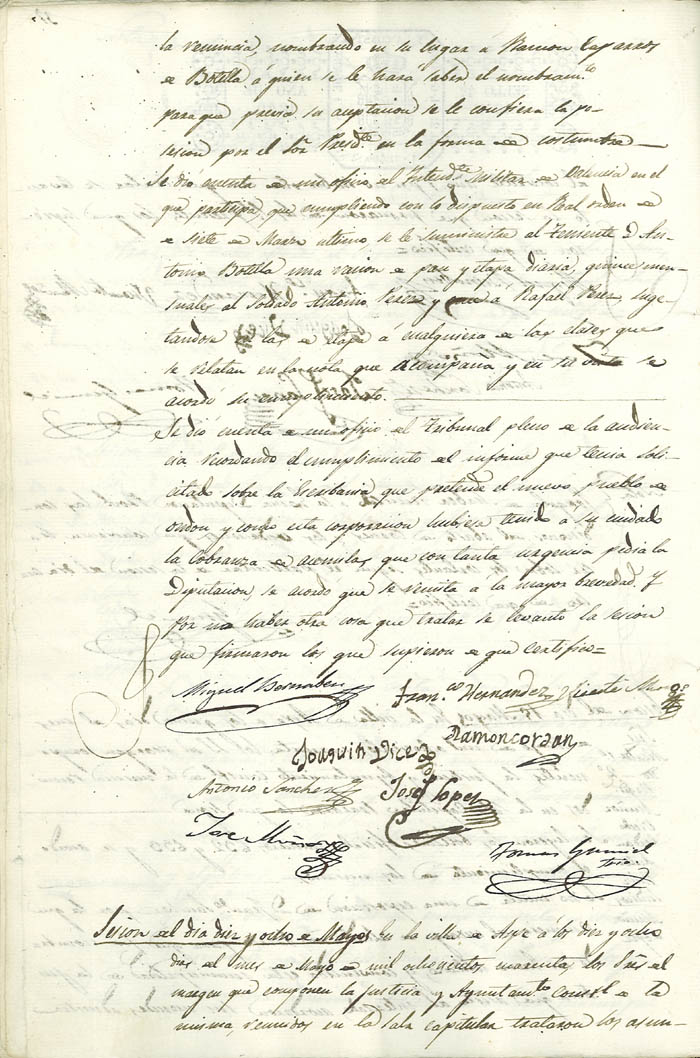 la renuncia, nombrando en su lugar á Ramon Caparros
de Botella á quien se le hará saber el nombram.to
para que previa su aceptacion se le confiera la po-
sesion por el Sor Presid.te en la forma de costumbre
Se dió cuenta de un oficio del Intend.te Militar de Valencia en el
que participa, que cumpliendo con lo dispuesto en Real orden de
de siete de Marzo ultimo, se le suministre al Teniente D. An-
tonio Botella una racion de pan y etapa diaria, quince men-
suales al Soldado Antonio Perez y a Rafael Perez, suge-
tandose las de etapa á cualquiera de las clases que
se relatan en la nota que acompaña y en su vista se
acordo su cumplimiento.
Se dio cuenta de un oficio del Tribunal pleno de la audien-
cia recordando el cumplimiento del informe que tenia soli-
citado sobre la Escribania que pretende el nuevo pueblo de
ondon y como esta corporacion hubiese tenido a su cuidado
la cobranza de que con tanta urgencia pedia la
Diputacion, se acordo que se remita á la mayor brevedad. Y
por no haber otra cosa que tratar se levanto la sesion
que firmaron los que supieron de que certifico=
Miguel Bernabeu
Fran.co Hernandez
Vicente
Joaquin Vicedo
Ramon cordan
Antonio Sanchez
Jose Lopez
Jose Muñoz
Tomas
Srio.
Sesion del dia diez y ocho de Mayo
En la villa de Aspe á los diez y ocho
dias del mes de Mayo de mil ochocientos cuarenta, los Sres del
margen que componen la Justicia y Ayuntam.to Const.l de la
misma, reunidos en la sala capitular trataron los asun-